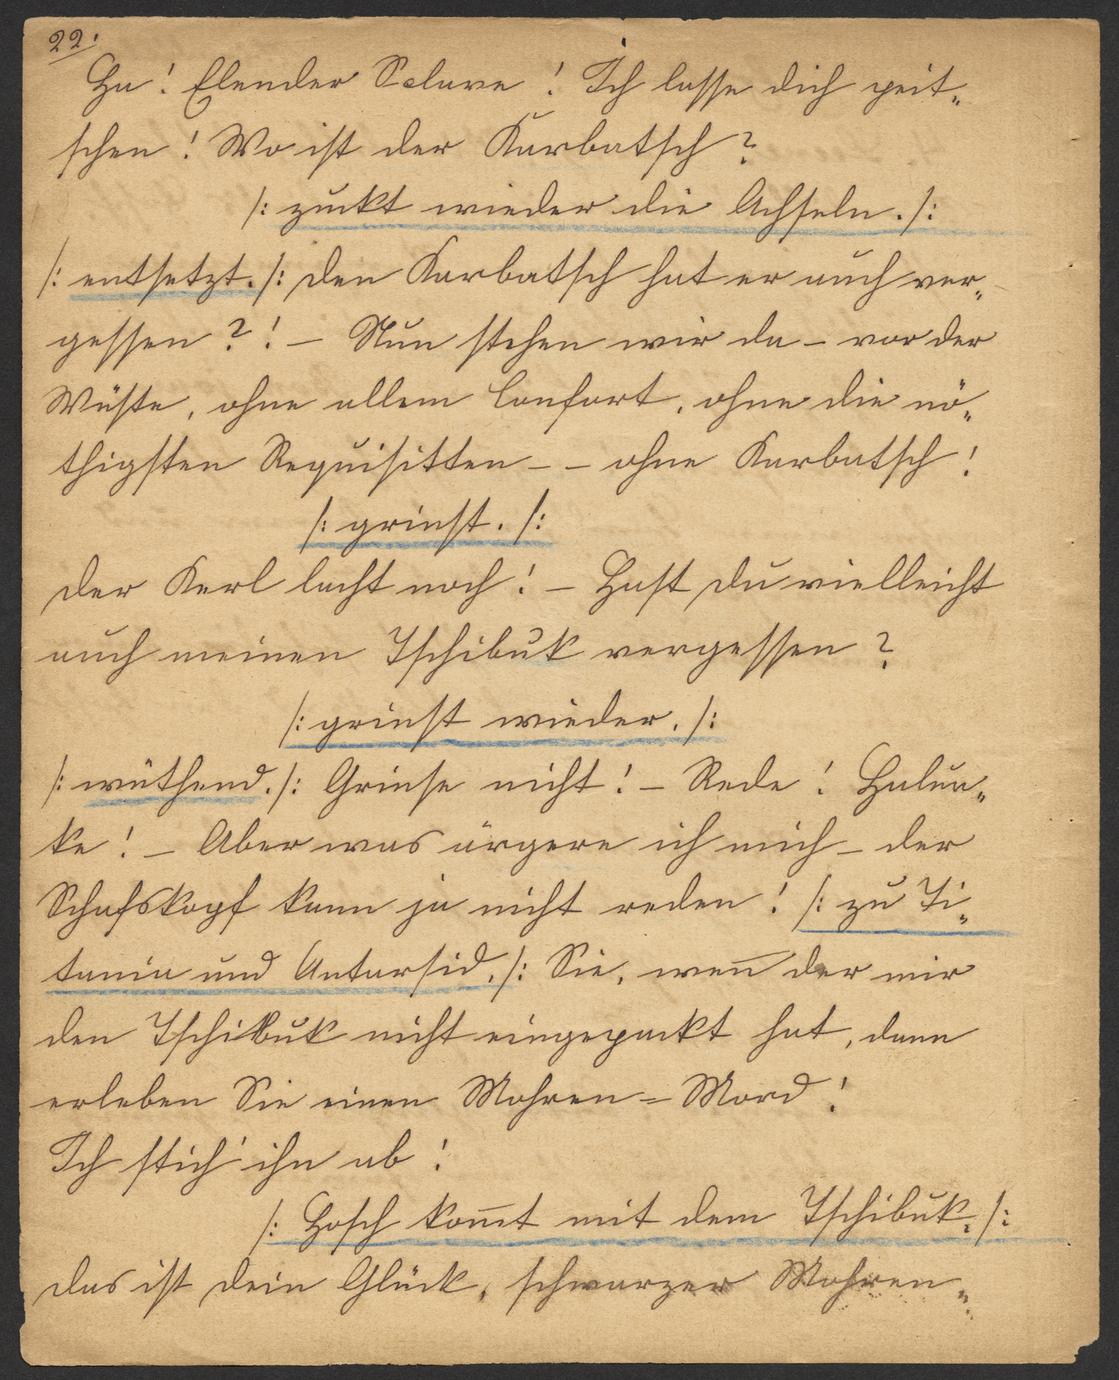 22.
Ha! Elender Sclave! Ich lasse dich peit„
schen! Wo ist der Karbatsch?
/: zuckt wieder die Achseln. /:
/: entsetzt. /: Den Karbatsch hat er auch ver„
gessen?! – Nun stehen wir da – vor der
Wüste, ohne allem Confort, ohne die nö„
thigsten Requisitten – – ohne Karbatsch!
/: grinst. /:
Der Kerl lacht noch! – Hast Du vielleicht
auch meinen Tschibuk vergessen?
/: grinst wieder. /:
/: wüthend. /: Grinse nicht! – Rede! Halun„
ke! – Aber was ärgere ich mich – der
Schafskopf kann ja nicht reden! /: zu Ti„
tania und Antarsid. /: Sie, wen̅ der mir
den Tschibuk nicht eingepackt hat, dann
erleben Sie einen Mohren=Mord!
Ich stich' ihn ab!
/: Hosch kom̅t mit dem Tschibuk. /:
Das ist Dein Glück, schwarzer Mohren„